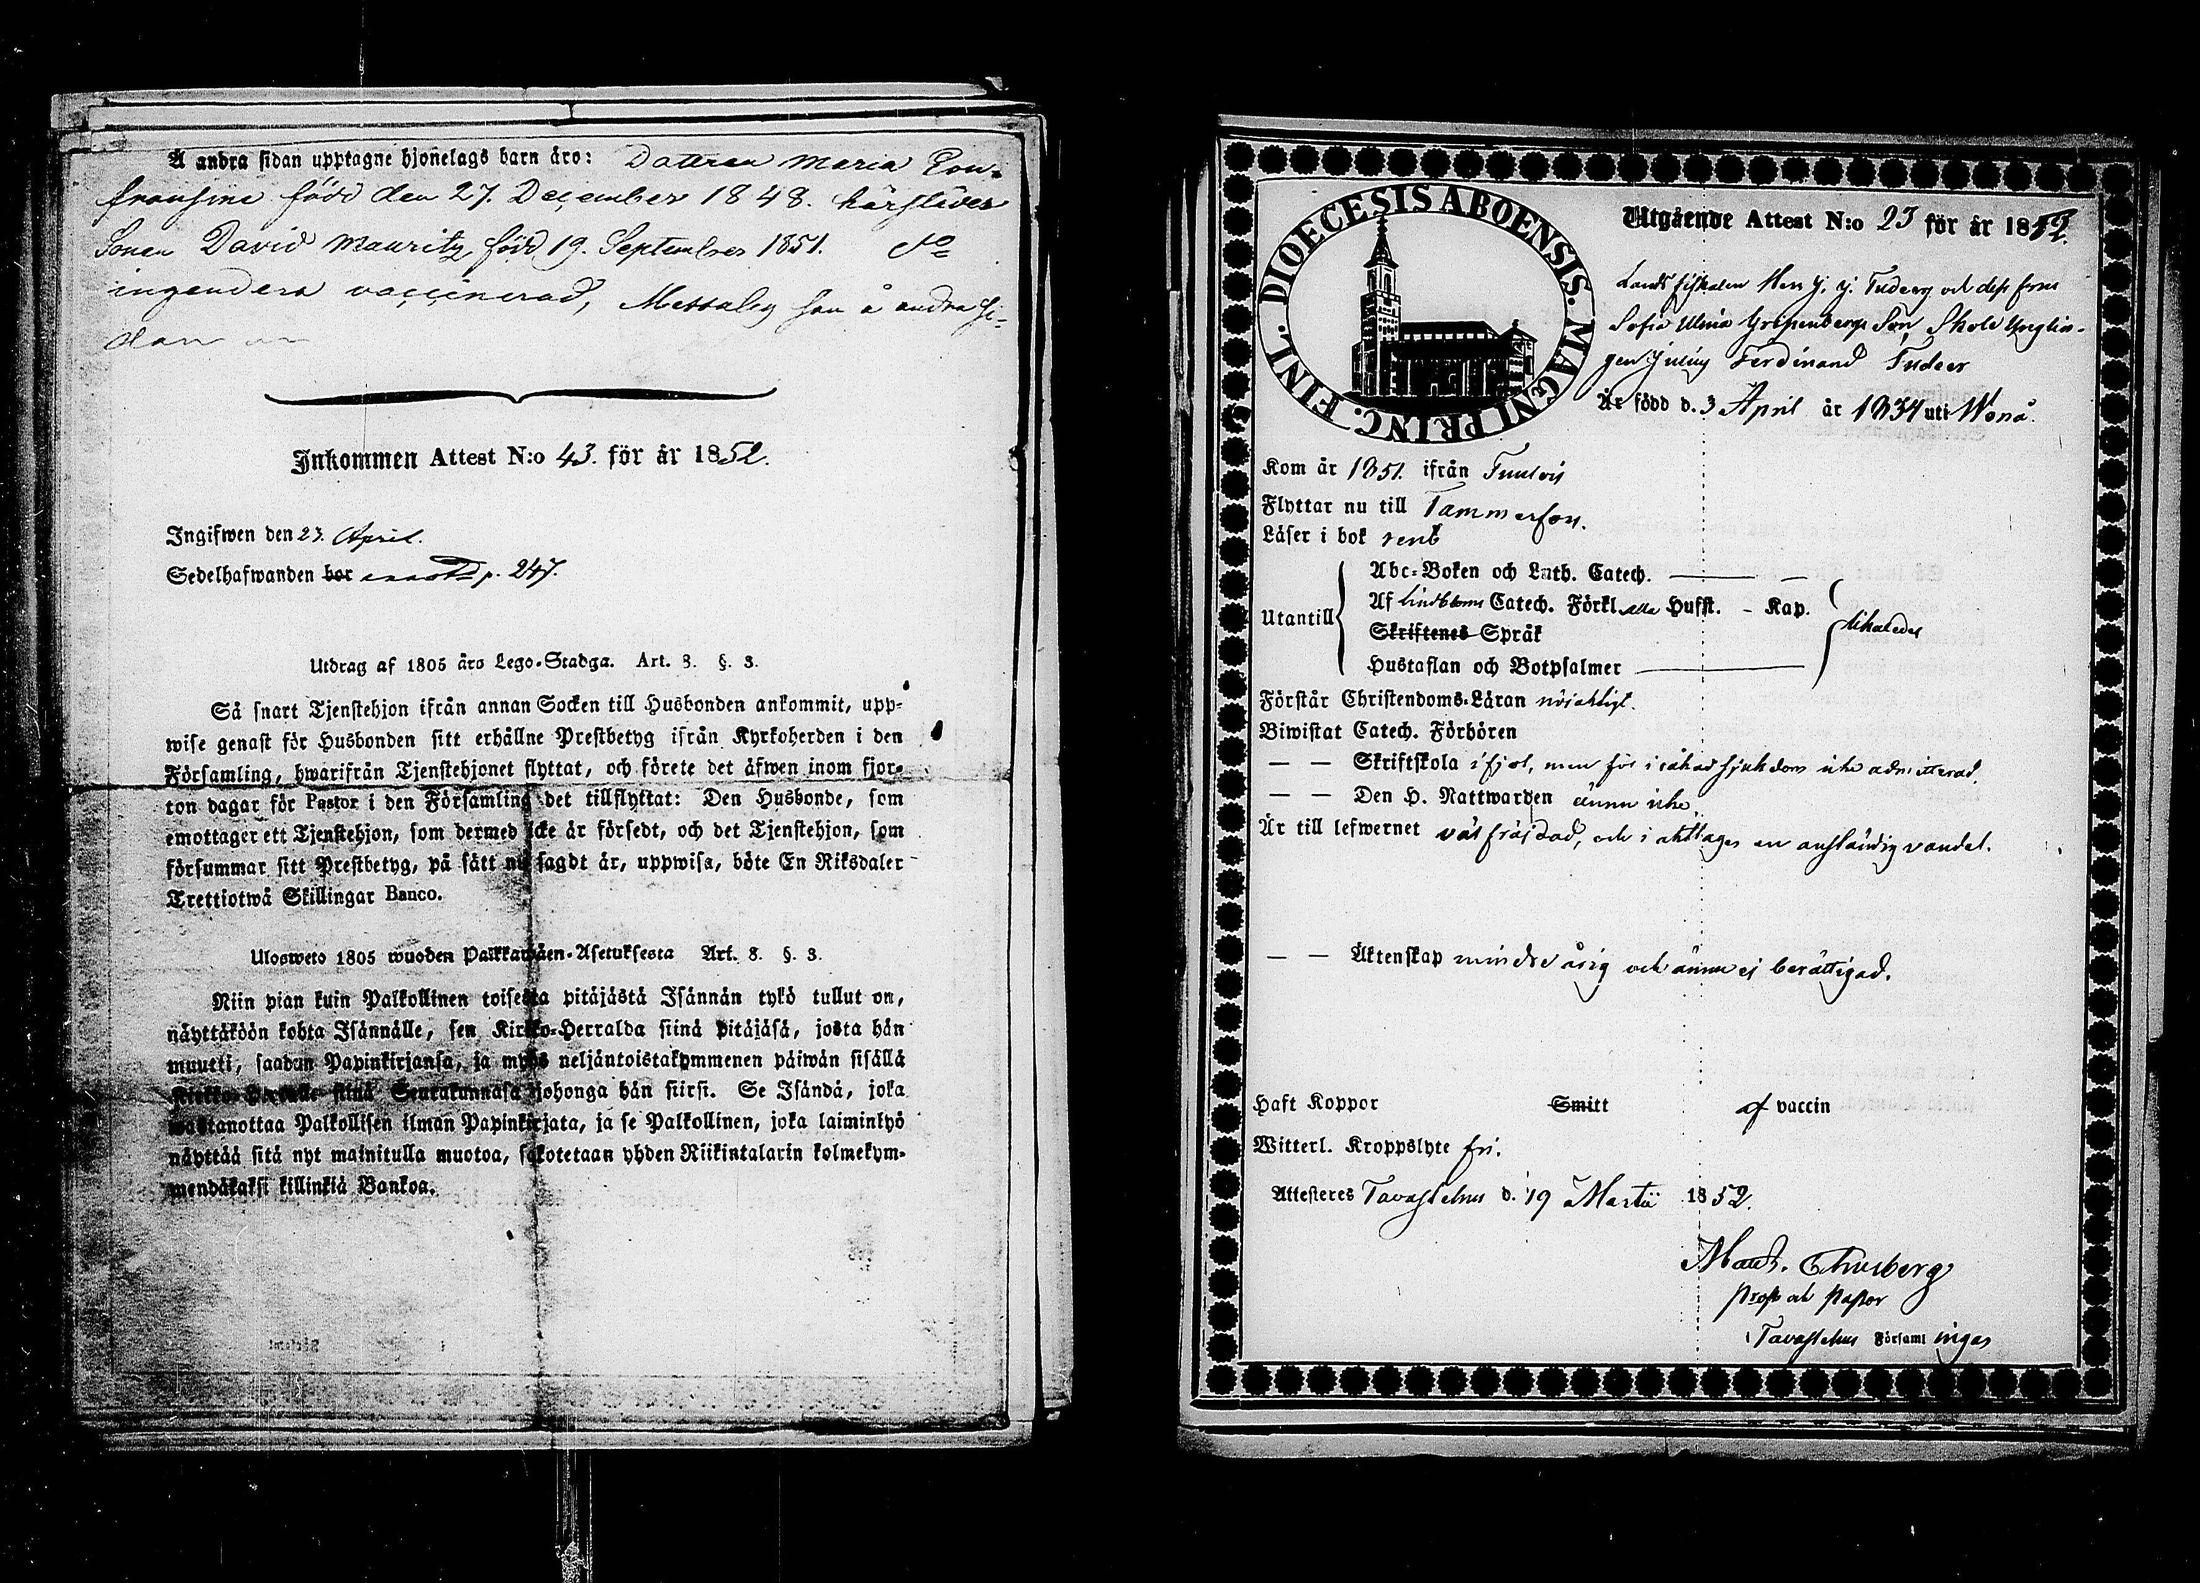 Å andra sidan upptagne hjonelags barn äro: Dottren Maria Eon-
fronsine född den 27. December 1848. härstädes
Sonen David Mauritz, född 19. September 1851.
ingendera vaccinerad, Messaley son å andra si-
dan
Inkommen Attest N:o 43. för år 1852.
Ingifwen den 23. April.
Sedelhafwanden bor p. 247.
Utdrag af 1805 års Lego-Stadga. Art. 8. §. 3.
Så snart Tjenstehjon ifrån annan Socken till Husbonden ankommit, upp-
wise genast för Husbonden sitt erhållne Prestbetyg ifrån Kyrkoherden i den
Församling, hwarifrån Tjenstehjonet flyttat, och förete det äfwen inom fjor-
ton dagar för Pastor i den Församling det tillflyttat: Den Husbonde, som
emottager ett Tjenstehjon, som dermed icke är försedt, och det Tjenstehjon, som
försummar sitt Prestbetyg, på sätt nu sagdt är, uppwisa, böte En Riksdaler
Trettiotwå Skillingar Banco.
Ulosweto 1805 wuoden Palkkawäen-Asetuksesta Art. 8. §. 3.
Niin pian kuin Palkollinen toisesta pitäjästä Isännän tykö tullut on,
näyttäköön kohta Isännälle, sen Kirkko-Herralda siinä pitäjäsä, josta hän
muutti, saadun Papinkirjansa, ja myös neljäntoistakymmenen päiwän sisällä
Kirkko-Herralle siinä Seurakunnasa johonga hän siirsi. Se Isändä, joka
wastanottaa Palkollisen ilman Papinkirjata, ja se Palkollinen, joka laiminlyö
näyttää sitä nyt mainitulla muotoa, sakotetaan yhden Riikintalarin kolmekym-
mendäkaksi killinkiä Bankoa.
DIOECESIS ABOENSIS. MAGNI PRINC. FINL.
Utgående Attest N:o 23 för år 1852.
Landsfiskalen Herr J. J. Tudeer och dess fru
Sofia Ulrica Gripenbergs Son, Skole Ynglin-
gen Julius Ferdinand Tudeer
Är född d. 3 April år 1834 uti Wånå.
Kom år 1851. ifrån Tuulois
Flyttar nu till Tammerfors.
Läser i bok rent
Abc-Boken och Luth. Catech. — —
Utantill Af Lindbloms Catech. Förkl. alla Hufst. - Kap.
Skriftenes Språk likaledes
Hustaflan och Botpsalmer —
Förstår Christendoms-Läran nöjaktigt.
Biwistat Catech. Förhören
— — Skriftskola i fjol, men för iråkad sjukdom icke admitterad.
— — Den H. Nattwarden ännu icke
Är till lefwernet välfräjdad, och i akttager en anständig vandel.
— — Äktenskap minderårig och ännu ej berättigad.
Haft Koppor Smitt af vaccin
Witterl. Kroppslyte fri.
Attesteres Tavastehus d. 19 Martii 1852.
Prost och Pastor
i Tavastehus Församlingar